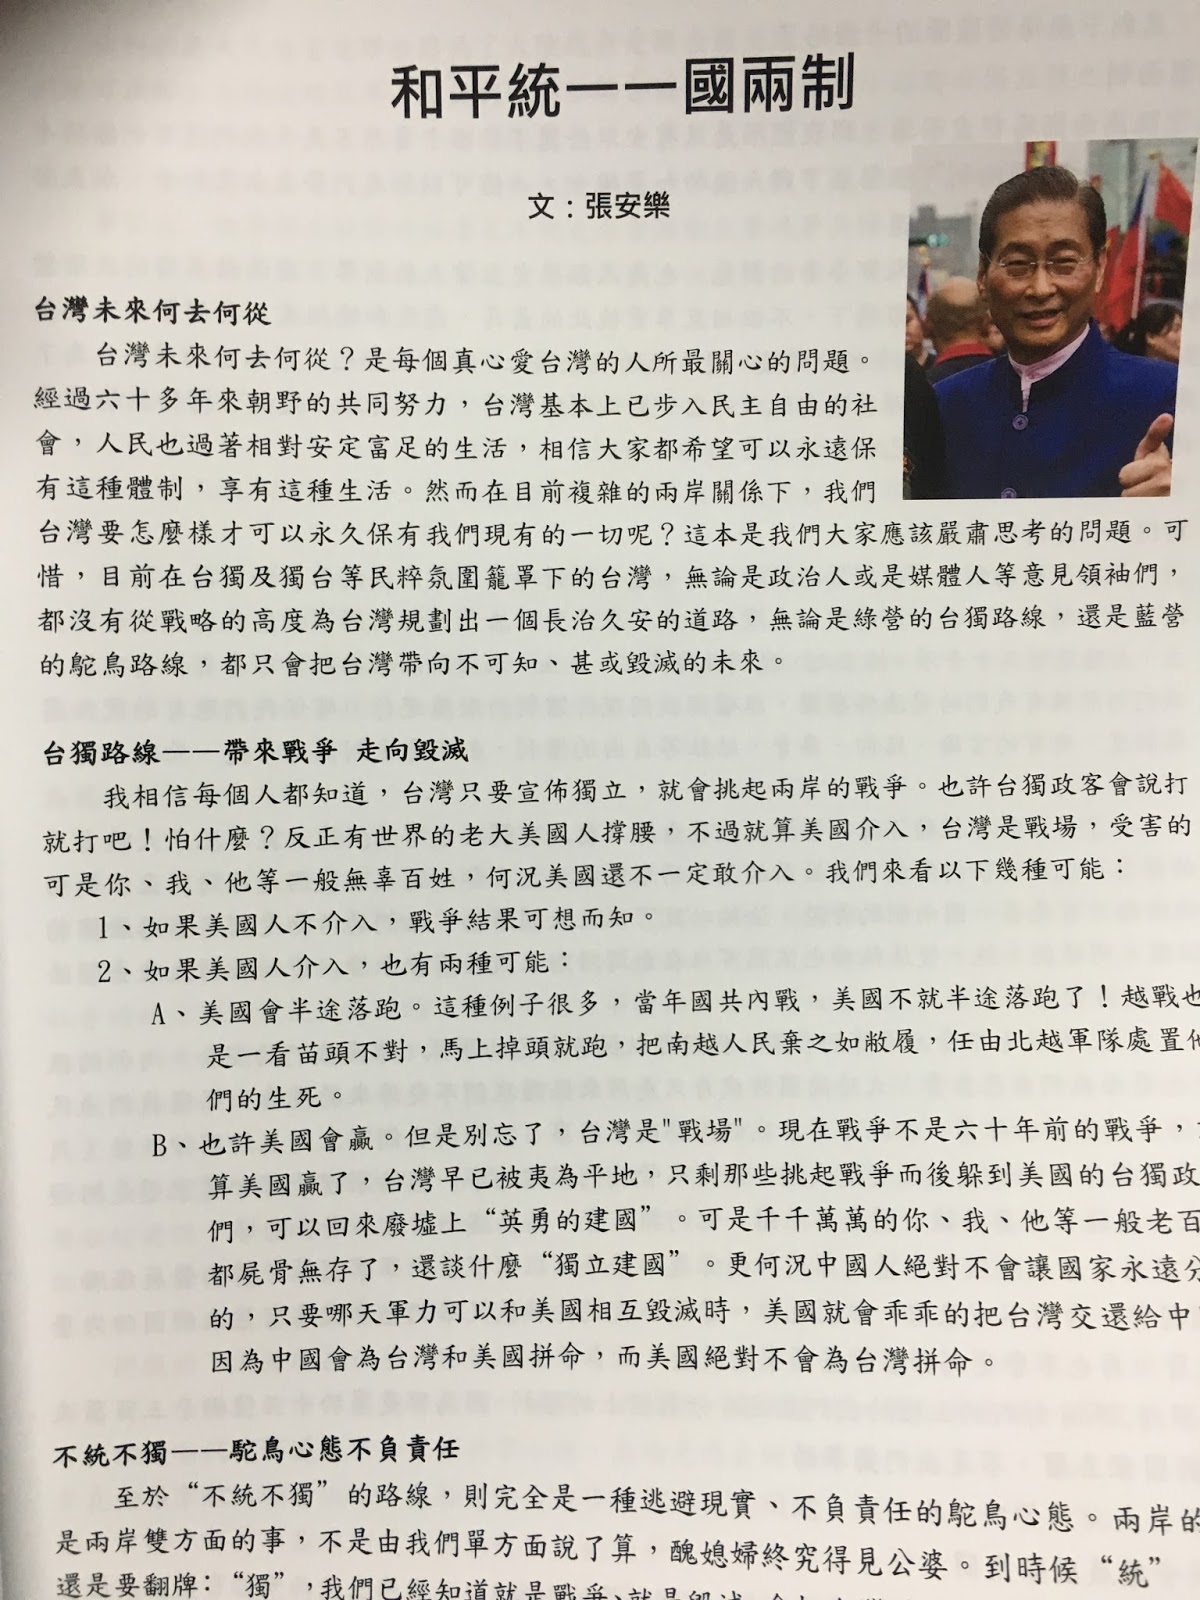 和平統一一國兩制
文：張安樂
台灣未來何去何從
台灣未來何去何從？是每個真心愛台灣的人所最關心的問題。
經過六十多年來朝野的共同努力，台灣基本上已步入民主自由的社
會，人民也過著相對安定富足的生活，相信大家都希望可以永遠保
有這種體制，享有這種生活。然而在目前複雜的兩岸關係下，我們
台灣要怎麼樣才可以永久保有我們現有的一切呢？這本是我們大家應該嚴肅思考的問題。可
惜，目前在台獨及獨台等民粹氛圍籠罩下的台灣，無論是政治人或是媒體人等意見領袖們，
都沒有從戰略的高度為台灣規劃出一個長治久安的道路，無論是綠營的台獨路線，還是藍營
的鴕鳥路線，都只會把台灣帶向不可知、甚或毀滅的未來。
台獨路線——帶來戰爭 走向毀滅
我相信每個人都知道，台灣只要宣佈獨立，就會挑起兩岸的戰爭。也許台獨政客會說打
就打吧！怕什麼？反正有世界的老大美國人撐腰，不過就算美國介入，台灣是戰場，受害的
可是你、我、他等一般無辜百姓，何況美國還不一定敢介入。我們來看以下幾種可能：
1、如果美國人不介入，戰爭結果可想而知。
2、如果美國人介入，也有兩種可能：
A、美國會半途落跑。這種例子很多，當年國共內戰，美國不就半途落跑了！越戰也
是一看苗頭不對，馬上掉頭就跑，把南越人民棄之如敝履，任由北越軍隊處置他
們的生死。
B、也許美國會贏。但是別忘了，台灣是"戰場"。現在戰爭不是六十年前的戰爭，
算美國贏了，台灣早已被夷為平地，只剩那些挑起戰爭而後躲到美國的台獨政
們，可以回來廢墟上“英勇的建國”。可是千千萬萬的你、我、他等一般老百
都屍骨無存了，還談什麼“獨立建國”。更何況中國人絕對不會讓國家永遠分
的，只要哪天軍力可以和美國相互毀滅時，美國就會乖乖的把台灣交還給中
因為中國會為台灣和美國拼命，而美國絕對不會為台灣拼命。
不統不獨——駝鳥心態不負責任
至於“不統不獨”的路線，則完全是一種逃避現實、不負責任的鴕鳥心態。兩岸的
是兩岸雙方面的事，不是由我們單方面說了算，醜媳婦終究得見公婆。到時候“統”
還是要翻牌：“獨”，我們已經知道就是戰爭、就是毀滅